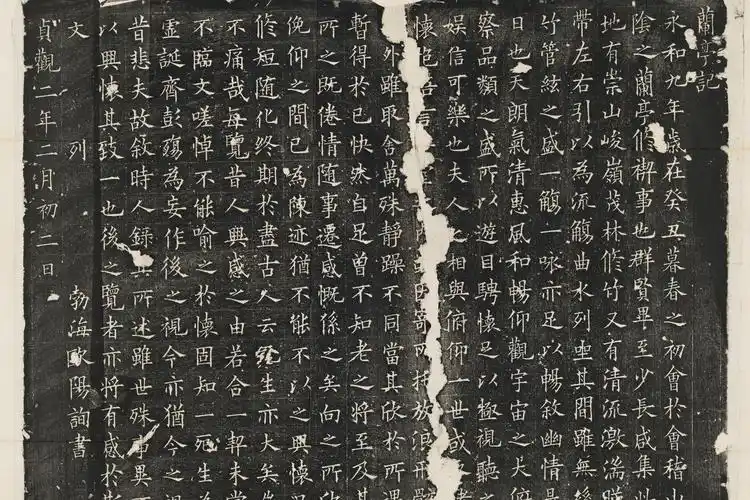 蘭亭記
永和九年歳在癸丑暮春之初會於會稽
陰之蘭亭修禊事也群賢畢至少長咸集
地有崇山峻嶺茂林修竹又有清流激湍
帶左右引以為流觴曲水列坐其間雖無
竹管絃之盛一觴一咏亦足以暢敘幽情是
日也天朗氣清惠風和暢仰觀宇宙之大俯
察品類之盛所以遊目騁懷足以極視聽之
娛信可樂也夫人相與俯仰一世或
懷寄所托放浪形
外雖取舍萬殊靜躁不同當其欣於所遇
暫得於己快然自足曾不知老之將至及其
所之既倦情隨事遷感慨係之矣向之所欣
俛仰之間已為陳迹猶不能不以之興懷況
修短隨化終期於盡古人云死生亦大矣
不痛哉每覽昔人興感之由若合一契未嘗
不臨文嗟悼不能喻之於懷固知一死生為
虛誕齊彭殤為妄作後之視今亦猶今之視
昔悲夫故敘時人錄其所述雖世殊事異
以興懷其致一也後之覽者亦將有感於斯
文 列 勃海歐陽詢書
貞觀二年二月初二日